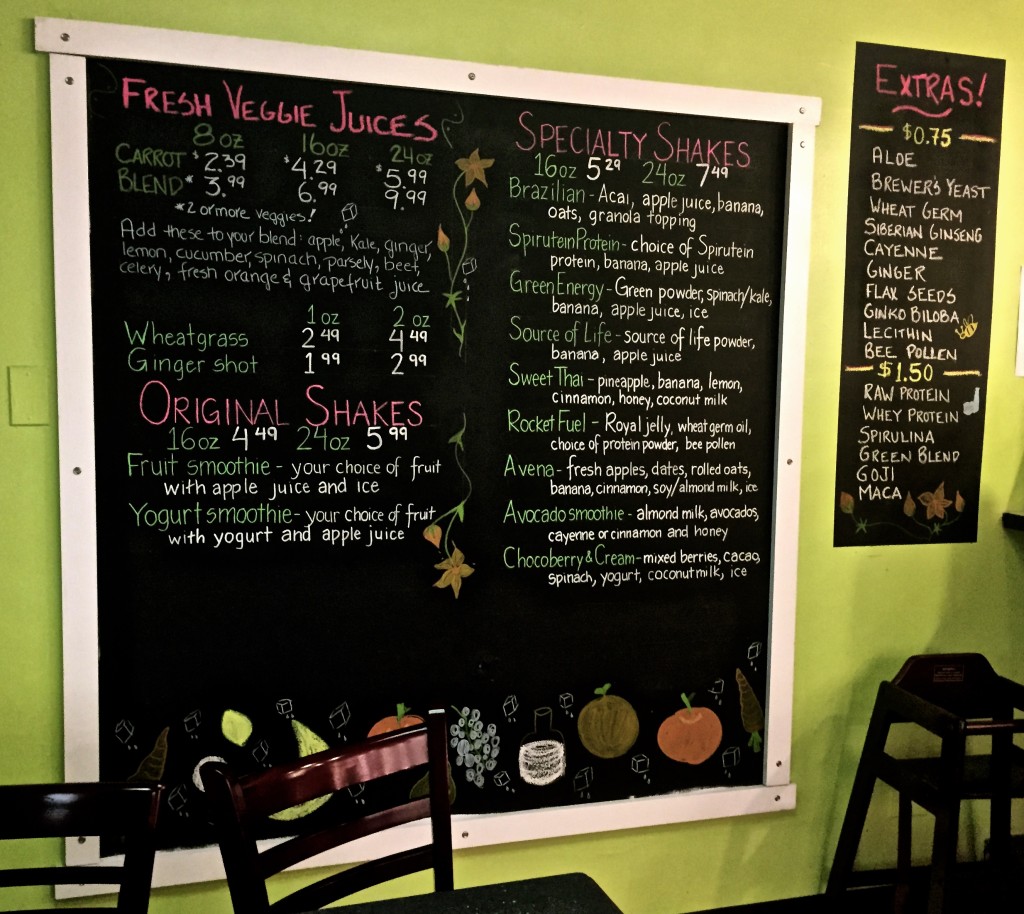 FRESH VEGGIE JUICES
8oz 16oz 24oz
CARROT $2.39 $4.29 $5.99
BLEND* 3.99 6.99 9.99
*2 or more veggies!
Add these to your blend: apple, Kale, ginger,
lemon, cucumber, spinach, parsely, beet,
celery, fresh orange & grapefruit juice
1oz 2oz
Wheatgrass 2 49 4 49
Ginger shot 1 99 2 99
ORIGINAL SHAKES
16oz 4 49 24oz 5 99
Fruit smoothie - your choice of fruit
with apple juice and ice
Yogurt smoothie - your choice of fruit
with yogurt and apple juice
SPECIALTY SHAKES
16oz 5 29 24oz 7 49
Brazilian - Acai, apple juice, banana,
oats, granola topping
Spirutein Protein - choice of Spirutein
protein, banana, apple juice
Green Energy - Green powder, spinach/kale,
banana, apple juice, ice
Source of Life - source of life powder,
banana, apple juice
Sweet Thai - pineapple, banana, lemon,
cinnamon, honey, coconut milk
Rocket Fuel - Royal jelly, wheat germ oil,
choice of protein powder, bee pollen
Avena - fresh apples, dates, rolled oats,
banana, cinnamon, soy/almond milk, ice
Avocado smoothie - almond milk, avocados,
cayenne or cinnamon and honey
Chocoberry & Cream - mixed berries, cacao,
spinach, yogurt, coconut milk, ice
EXTRAS!
$0.75
ALOE
BREWER'S YEAST
WHEAT GERM
SIBERIAN GINSENG
CAYENNE
GINGER
FLAX SEEDS
GINKO BILOBA
LECITHIN
BEE POLLEN
$1.50
RAW PROTEIN
WHEY PROTEIN
SPIRULINA
GREEN BLEND
GOJI
MACA